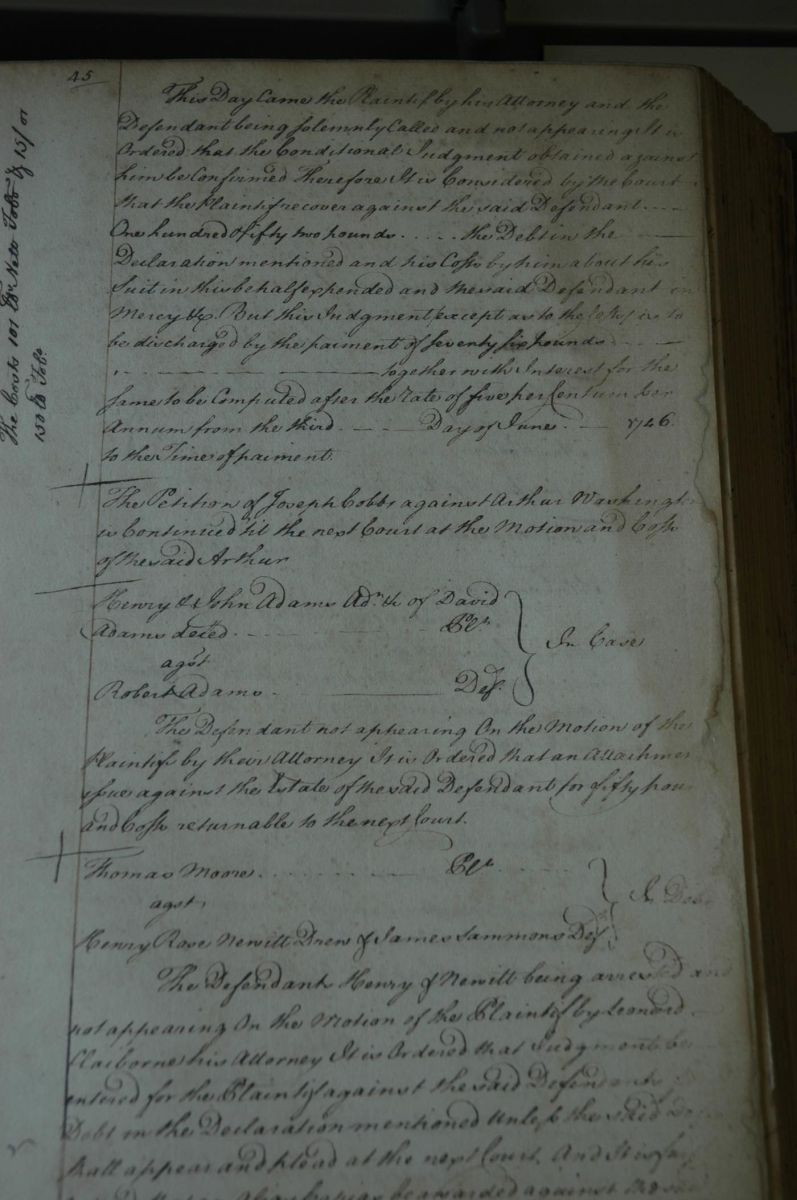 45
The Costs 101 lb Nett Tobo & 15/ or
150 lb Tobo
This Day Came the Plaintif by his Attorney and the
Defendant being Solemnly Called and not appearing It is
Ordered that the Conditional Judgment obtained against
him be Confirmed Therefore It is Considered by the Court
that the Plaintif recover against the said Defendant
One hundred & fifty two pounds the Debt in the
Declaration mentioned and his Costs by him about his
Suit in this behalf expended and the said Defendant in
Mercy &c. But this Judgment (except as to the Costs) is to
be discharged by the paiment of Seventy Six pounds
together with Interest for the
Same to be Computed after the rate of five per Centum per
Annum from the third Day of June 1746
to the Time of paiment.
The Petition of Joseph Cobbs against Arthur Washingt
is Continued 'til the next Court at the Motion and Costs
of the said Arthur
Henry & John Adams Adrs &c of David
Adams deced. Plts
agst
Robert Adams. Deft.
In Case
The Defendant not appearing On the Motion of the
Plaintifs by their Attorney It is Ordered that an Attachmen
issue against the Estate of the said Defendant for fifty poun
and Costs returnable to the next Court.
Thomas Moore. Plt
agst.
In Debt
Henry Rose Newitt Drew & James Sammons Defts
The Defendants Henry & Newitt being arrested and
not appearing On the Motion of the Plaintif by Leonard
Claiborne his Attorney It is Ordered that Judgment be
entered for the Plaintif against the said Defendants
Debt in the Declaration mentioned Unless the said
shall appear and plead at the next Court. And It is
be awarded against the